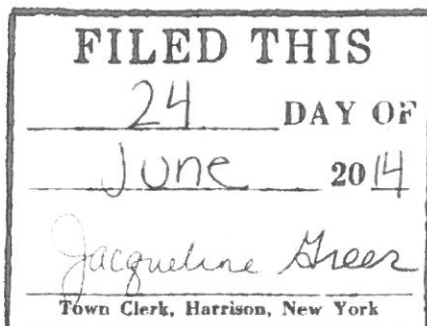 FILED THIS
24 DAY OF
June 2014
Jacqueline Greer
Town Clerk, Harrison, New York